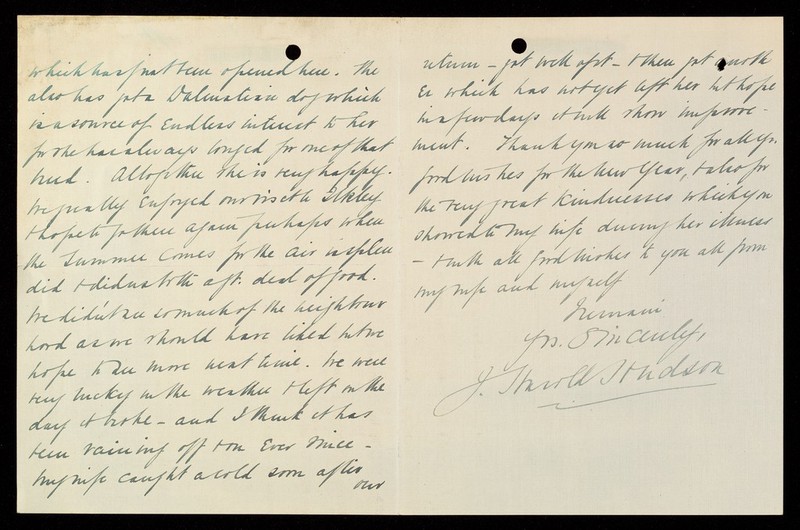 which has just been opened here. She
also has got a Dalmatian dog which
is a source of endless interest to her
for she has always longed for one of that
breed. Altogether she is very happy.
We greatly enjoyed our visit to Ilkley
& hope to go there again perhaps when
the Summer comes for the air is splen
did & did us both a gt. deal of good.
We didn't see so much of the neighbour
hood as we should have liked but we
hope to see more next time. We were
very lucky in the weather & left on the
day it broke - and I think it has
been raining off & on ever since -
My wife caught a cold soon after
our
return - got well of it - & then got another
which has not yet left her but hope
in a few days it will show improve-
ment. Thank you so much for all yr.
good wishes for the New Year, & also for
the very great kindnesses which you
showed to my wife during her illness
- & with all good wishes to you all from
my wife and myself
I remain
Yrs. Sincerely,
J. Harold Hudson